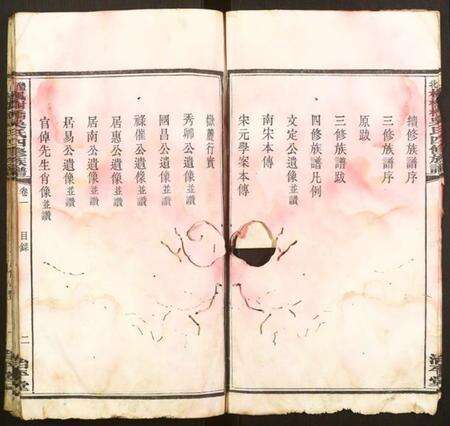 續修族譜序
三修族譜序
原跋
三修族譜跋
四修族譜凡例
文定公遺像並讚
南宋本傳
宋元學案本傳
儆麓行實
秀卿公遺像並讚
國昌公遺像並讚
祿催公遺像並讚
居惠公遺像並讚
居易公遺像並讚
官倬先生肖像並讚
氏四修族譜
卷一
目錄
二
治平堂